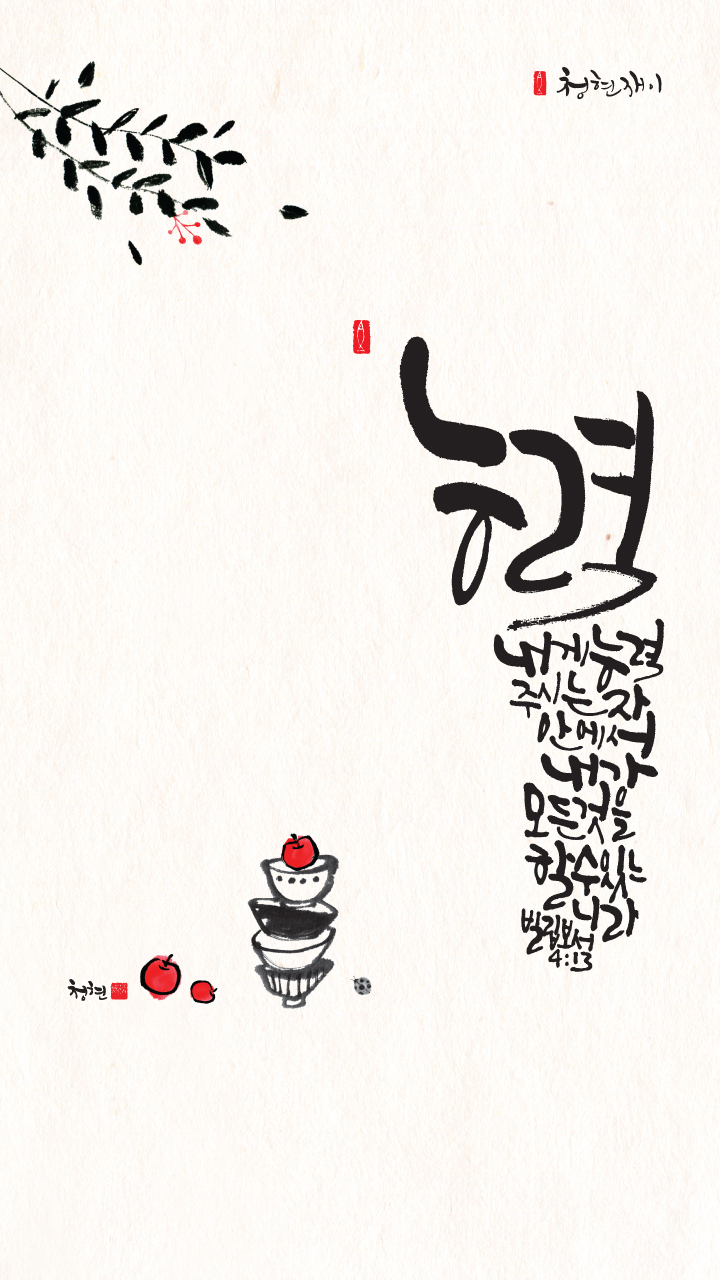 청현재이
능력
내게 능력
주시는 자
안에서
내가
모든것을
할 수 있는
니라
빌립보서
4:13
청현